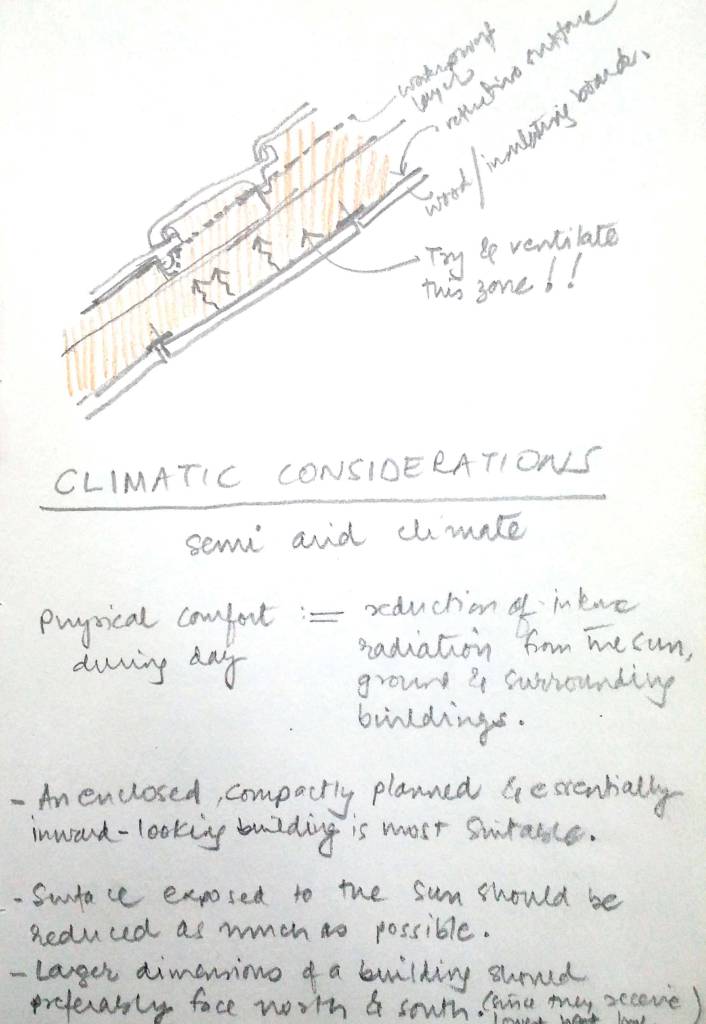 waterproof
layer
reflective surface
wood/insulating boards.
Try & ventilate
this zone!!
CLIMATIC CONSIDERATIONS
semi arid climate
Physical comfort := reduction of intense
during day radiation from the sun,
ground & surrounding
buildings.
- An enclosed, compactly planned & essentially
inward-looking building is most suitable.
- Surface exposed to the sun should be
reduced as much as possible.
- Larger dimensions of a building should
preferably face north & south. (since they receive)
lowest heat